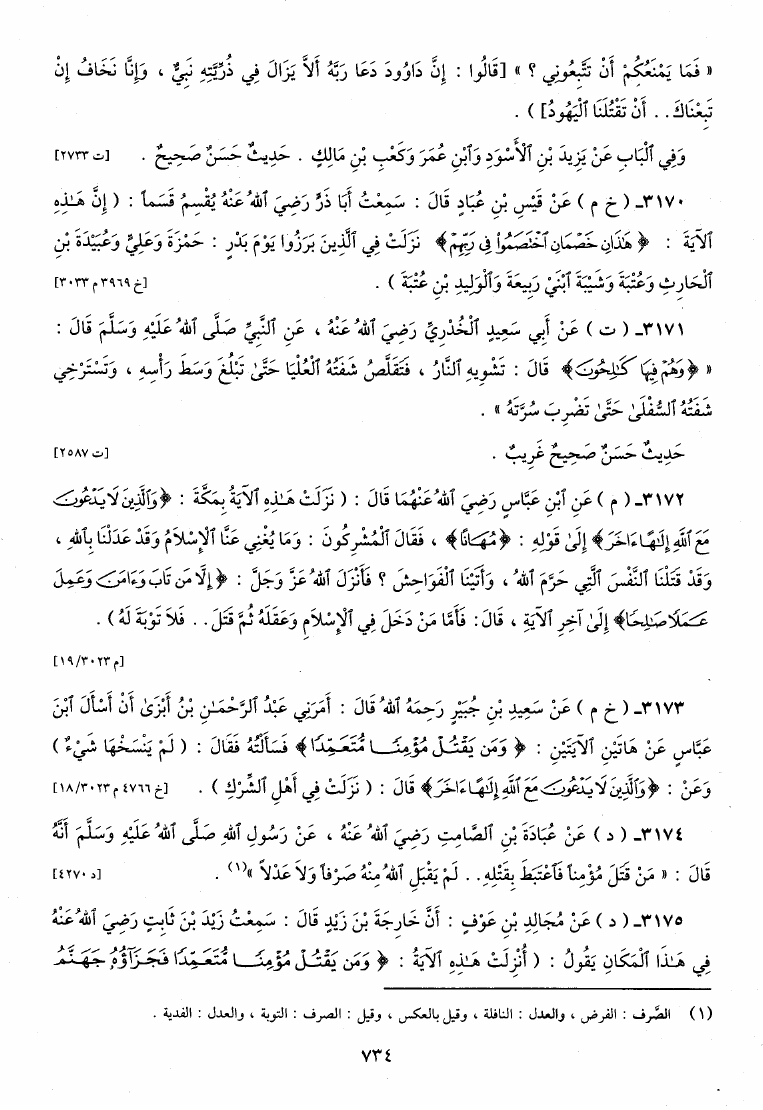 « فَمَا يَمْنَعُكُمْ أَنْ تَتَّبِعُونِي ؟ » [قَالُوا : إِنَّ دَاوُودَ دَعَا رَبَّهُ أَلاَّ يَزَالَ فِي ذُرِّيَّتِهِ نَبِيٌّ ، وَإِنَّا نَخَافُ إِنْ
تَبِعْنَاكَ . . أَنْ تَقْتُلَنَا ٱلْيَهُودُ] ) .
وَفِي ٱلْبَابِ عَنْ يَزِيدَ بْنِ ٱلأَسْوَدِ وَٱبْنِ عُمَرَ وَكَعْبِ بْنِ مَالِكٍ . حَدِيثٌ حَسَنٌ صَحِيحٌ . [ت ٢٧٣٣]
٣١٧٠ـ ( خ م ) عَنْ قَيْسِ بْنِ عُبَادٍ قَالَ : سَمِعْتُ أَبَا ذَرٍّ رَضِيَ ٱللهُ عَنْهُ يُقْسِمُ قَسَماً : ( إِنَّ هَـٰذِهِ
ٱلآيَةَ : ﴿ هَٰذَانِ خَصْمَانِ ٱخْتَصَمُوا۟ فِى رَبِّهِمْ ﴾ نَزَلَتْ فِي ٱلَّذِينَ بَرَزُوا يَوْمَ بَدْرٍ : حَمْزَةَ وَعَلِيٍّ وَعُبَيْدَةَ بْنِ
ٱلْحَارِثِ وَعُتْبَةَ وَشَيْبَةَ ٱبْنَيْ رَبِيعَةَ وَٱلْوَلِيدِ بْنِ عُتْبَةَ ) . [خ ٣٩٦٩ م ٣٠٣٣]
٣١٧١ـ ( ت ) عَنْ أَبِي سَعِيدٍ ٱلْخُدْرِيِّ رَضِيَ ٱللهُ عَنْهُ ، عَنِ ٱلنَّبِيِّ صَلَّى ٱللهُ عَلَيْهِ وَسَلَّمَ قَالَ :
« ﴿وَهُمْ فِيهَا كَٰلِحُونَ﴾ قَالَ : تَشْوِيهِ ٱلنَّارُ ، فَتَقَلَّصُ شَفَتُهُ ٱلْعُلْيَا حَتَّىٰ تَبْلُغَ وَسَطَ رَأْسِهِ ، وَتَسْتَرْخِي
شَفَتُهُ ٱلسُّفْلَىٰ حَتَّىٰ تَضْرِبَ سُرَّتَهُ » .
حَدِيثٌ حَسَنٌ صَحِيحٌ غَرِيبٌ . [ت ٢٥٨٧]
٣١٧٢ـ ( م ) عَنِ ٱبْنِ عَبَّاسٍ رَضِيَ ٱللهُ عَنْهُمَا قَالَ : ( نَزَلَتْ هَـٰذِهِ ٱلآيَةُ بِمَكَّةَ : ﴿وَٱلَّذِينَ لَا يَدْعُونَ
مَعَ ٱللَّهِ إِلَٰهًا ءَاخَرَ﴾ إِلَىٰ قَوْلِهِ : ﴿مُهَانًا﴾ ، فَقَالَ ٱلْمُشْرِكُونَ : وَمَا يُغْنِي عَنَّا ٱلإِسْلاَمُ وَقَدْ عَدَلْنَا بِٱللهِ ،
وَقَدْ قَتَلْنَا ٱلنَّفْسَ ٱلَّتِي حَرَّمَ ٱللهُ ، وَأَتَيْنَا ٱلْفَوَاحِشَ ؟ فَأَنْزَلَ ٱللهُ عَزَّ وَجَلَّ : ﴿إِلَّا مَن تَابَ وَءَامَنَ وَعَمِلَ
عَمَلًا صَٰلِحًا﴾ إِلَىٰ آخِرِ ٱلآيَةِ ، قَالَ: فَأَمَّا مَنْ دَخَلَ فِي ٱلإِسْلاَمِ وَعَقَلَهُ ثُمَّ قَتَلَ . . فَلاَ تَوْبَةَ لَهُ ) .
[م ١٩/٣٠٢٣]
٣١٧٣ـ ( خ م ) عَنْ سَعِيدِ بْنِ جُبَيْرٍ رَحِمَهُ ٱللهُ قَالَ : أَمَرَنِي عَبْدُ ٱلرَّحْمَـٰنِ بْنُ أَبْزَىٰ أَنْ أَسْأَلَ ٱبْنَ
عَبَّاسٍ عَنْ هَاتَيْنِ ٱلآيَتَيْنِ : ﴿ وَمَن يَقْتُلْ مُؤْمِنًا مُّتَعَمِّدًا﴾ فَسَأَلْتُهُ فَقَالَ : ( لَمْ يَنْسَخْهَا شَيْءٌ )
وَعَنْ : ﴿وَٱلَّذِينَ لَا يَدْعُونَ مَعَ ٱللَّهِ إِلَٰهًا ءَاخَرَ﴾ قَالَ : ( نَزَلَتْ فِي أَهْلِ ٱلشِّرْكِ ) . [خ ٤٧٦٦ م ١٨/٣٠٢٣]
٣١٧٤ـ ( د ) عَنْ عُبَادَةَ بْنِ ٱلصَّامِتِ رَضِيَ ٱللهُ عَنْهُ ، عَنْ رَسُولِ ٱللهِ صَلَّى ٱللهُ عَلَيْهِ وَسَلَّمَ أَنَّهُ
قَالَ : « مَنْ قَتَلَ مُؤْمِناً فَٱعْتَبَطَ بِقَتْلِهِ . . لَمْ يَقْبَلِ ٱللهُ مِنْهُ صَرْفاً وَلاَ عَدْلاً »(١) . [د ٤٢٧٠]
٣١٧٥ـ ( د ) عَنْ مُجَالِدِ بْنِ عَوْفٍ : أَنَّ خَارِجَةَ بْنَ زَيْدٍ قَالَ : سَمِعْتُ زَيْدَ بْنَ ثَابِتٍ رَضِيَ ٱللهُ عَنْهُ
فِي هَـٰذَا ٱلْمَكَانِ يَقُولُ : ( أُنْزِلَتْ هَـٰذِهِ ٱلآيَةُ : ﴿ وَمَن يَقْتُلْ مُؤْمِنًا مُّتَعَمِّدًا فَجَزَآؤُهُۥ جَهَنَّمُ
(١) الصَّرف : الفرض ، والعدل : النافلة ، وقيل بالعكس ، وقيل : الصرف : التوبة ، والعدل : الفدية .
٧٣٤